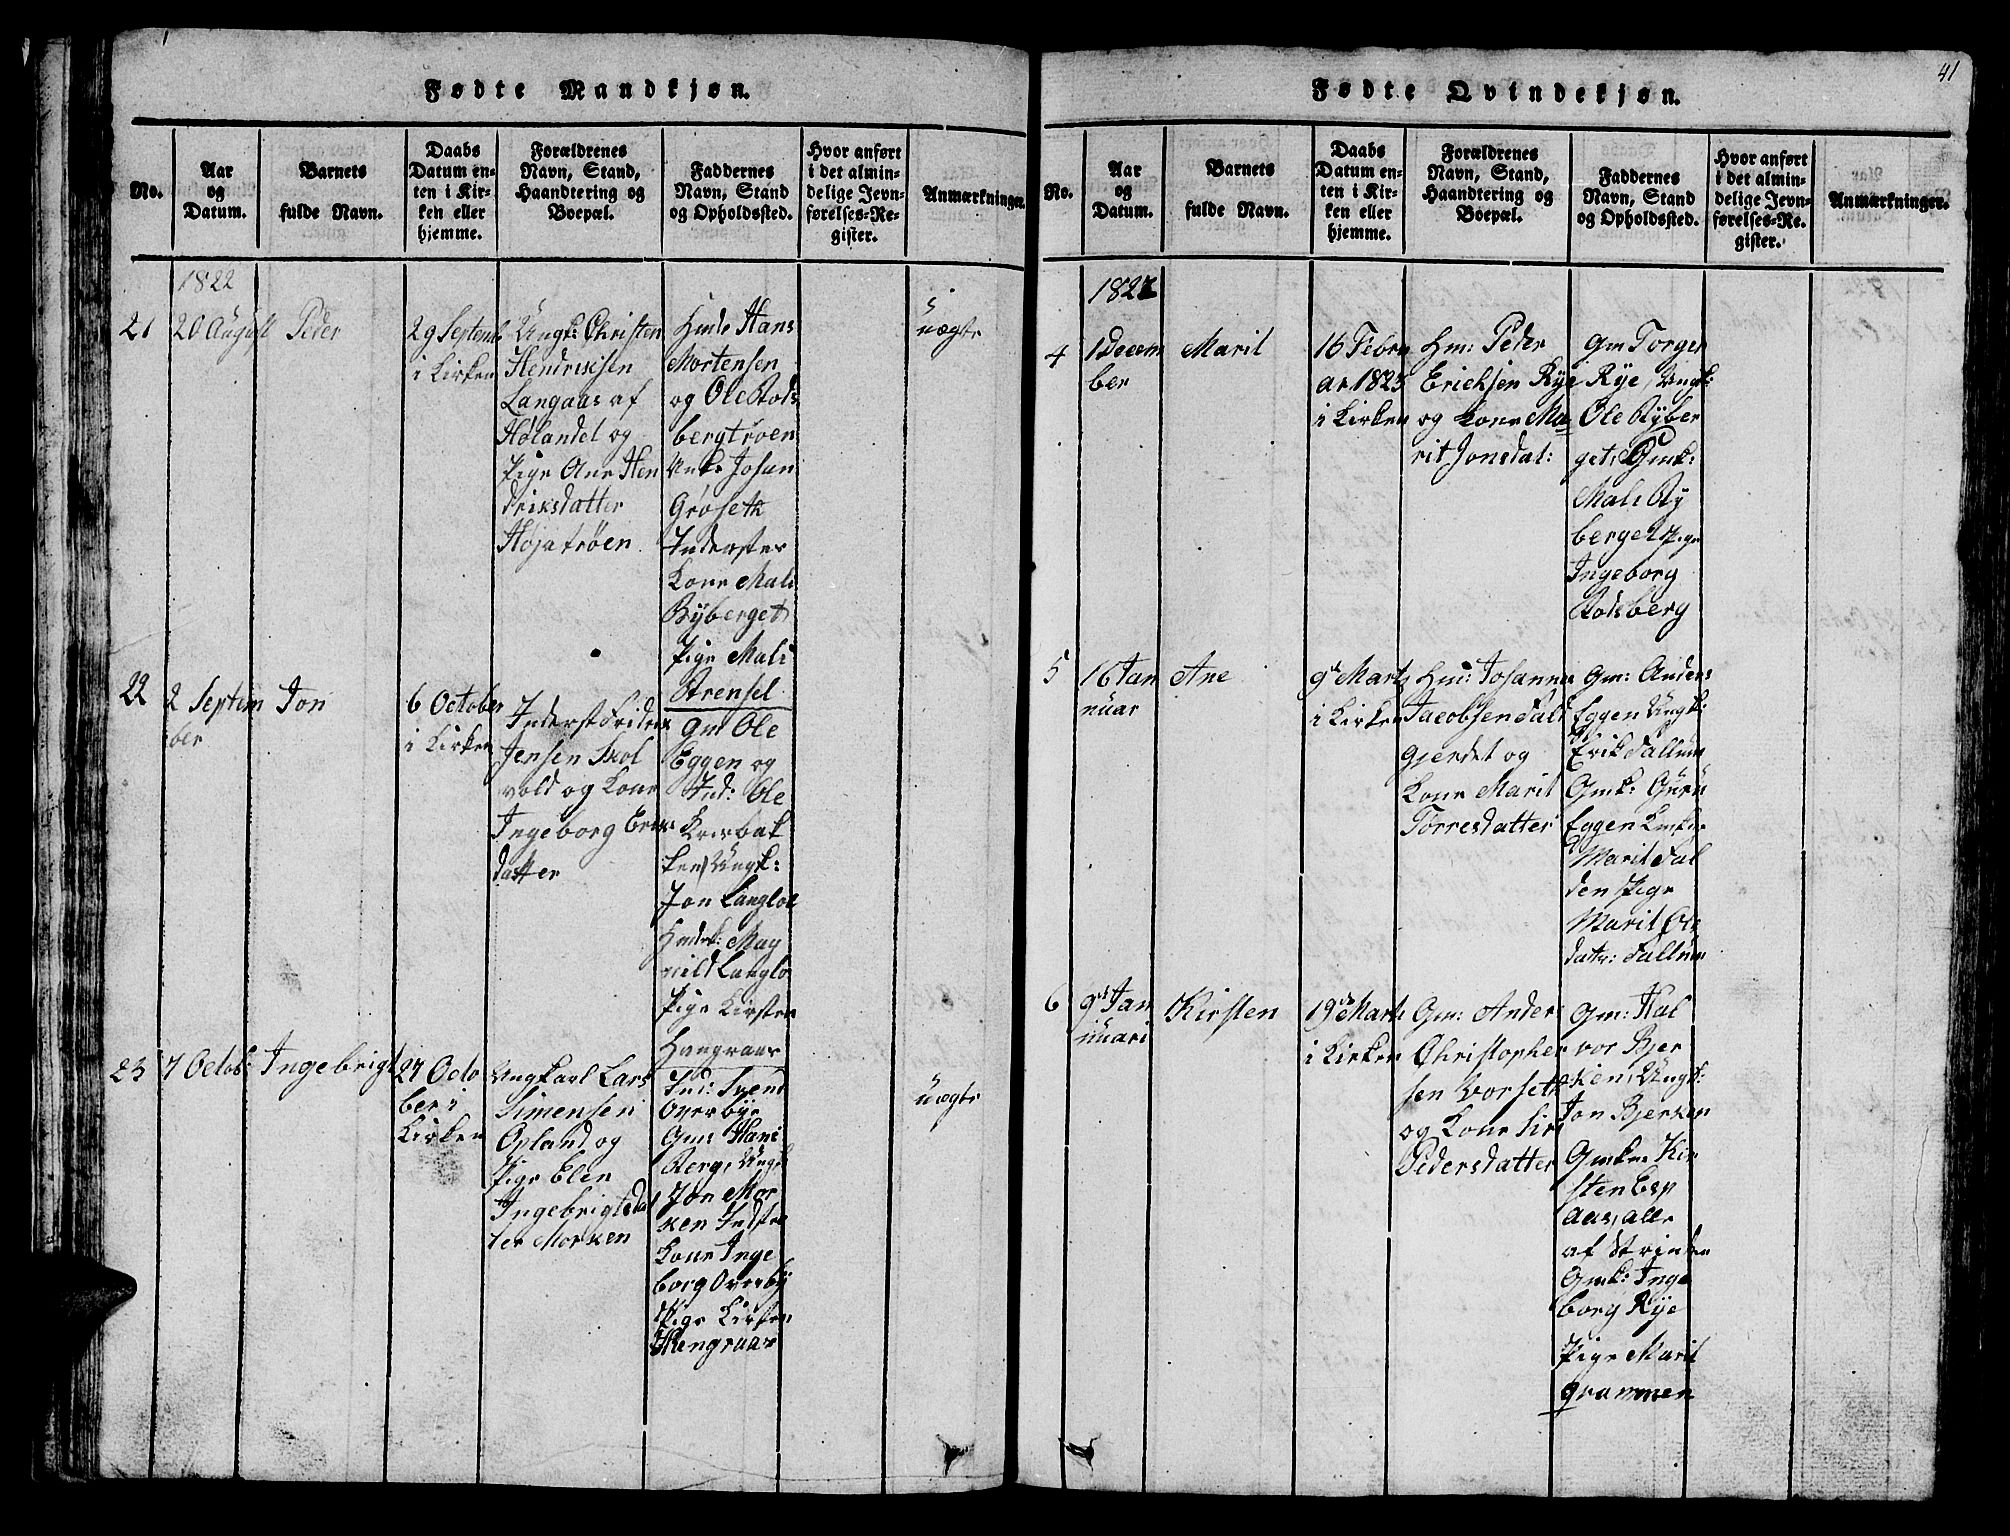 41
Fødte Mandkjøn.
No.
Aar
og
Datum.
Barnets
fulde Navn.
Daabs
Datum en-
ten i Kir-
ken eller
hjemme.
Forældrenes
Navn, Stand,
Haandtering og
Boepæl.
Faddernes
Navn, Stand
og Opholdssted.
Hvor anført
i det almin-
delige Jevn-
førelses-Re-
gister.
Anmærkninger.
1822
21
20 August
Peder
29 Septemb
i Kirken
Ungk: Christen
Hendriksen
Langaas af
Hølandet og
Pige Ane Hen
driksdatter
Højatrøen
Hmds Hans
Mortensen
og Ole Rods
bergtrøen
Unk: Johan
Grøseth
Inderstes
Kone Mali
Byberget
Pige Mali
Strensel
uægte
22
2 Septem
ber
Jon
6 October
i Kirken
Inderst Fridrik
Jensen Skol
vold og Kone
Ingeborg Eriks
datter
Gm Ole
Eggen og
Ind: Ole
Krisbak
ken, Ungk:
Jon Langlo
Hmdsk: Mag
nild Langlo
Pige Kirsten
Hangraas
23
7 Octob:
Ingebrigt
27 Octo
ber i
Kirken
Ungkarl Lars
Simensen
Opland og
Pige Elen
Ingebrigtsda
ter Morken
Ind: Svend
Overbye
Gm: Hans
Berg, Ungk
Jon Mor
ken Indste
Kone Inge
borg Overby
Pige Kirsten
Hengraas
uægte
Fødte Qvindekjøn.
No.
Aar
og
Datum.
Barnets
fulde Navn.
Daabs
Datum en-
ten i Kir-
ken eller
hjemme.
Forældrenes
Navn, Stand,
Haandtering og
Boepæl.
Faddernes
Navn, Stand
og Opholdssted.
Hvor anført
i det almin-
delige Jevn-
førelses-Re-
gister.
Anmærkninger.
1822
4
1 Decem
ber
Marit
16 Febru
ar 1823
i Kirken
Hm: Peder
Ericksen Rye
og Kone Ma
rit Jonsdat:
Gm Torger
Rye, Ungk:
Ole Ryber
get, Gmk:
Mali Ry
berget Pige
Ingeborg
Rodsberg
5
16 Jan
nuar
Ane
9de Marts
i Kirken
Hm: Johannes
Jacobsen Fald
gjerdet og
Kone Marit
Torresdatter
Gm: Anders
Eggen Ungk:
Erik Fallum
Gmk: Guru
Eggen
Marit Fal
den Pige
Marit Ols
datr: Fallum
6
9de Jan
nuari
Kirsten
19de Marts
i Kirken
Gm: Anders
Christopher
sen Vorseth
og Kone Siri
Pedersdatter
Gm: Hal
vor Bjer
ken, Ungk:
Jon Bjerken
Gmk: Kir
sten Esp
aas, alle
af Strinden
Gmk: Inge
borg Rye
Pige Marit
Grammen